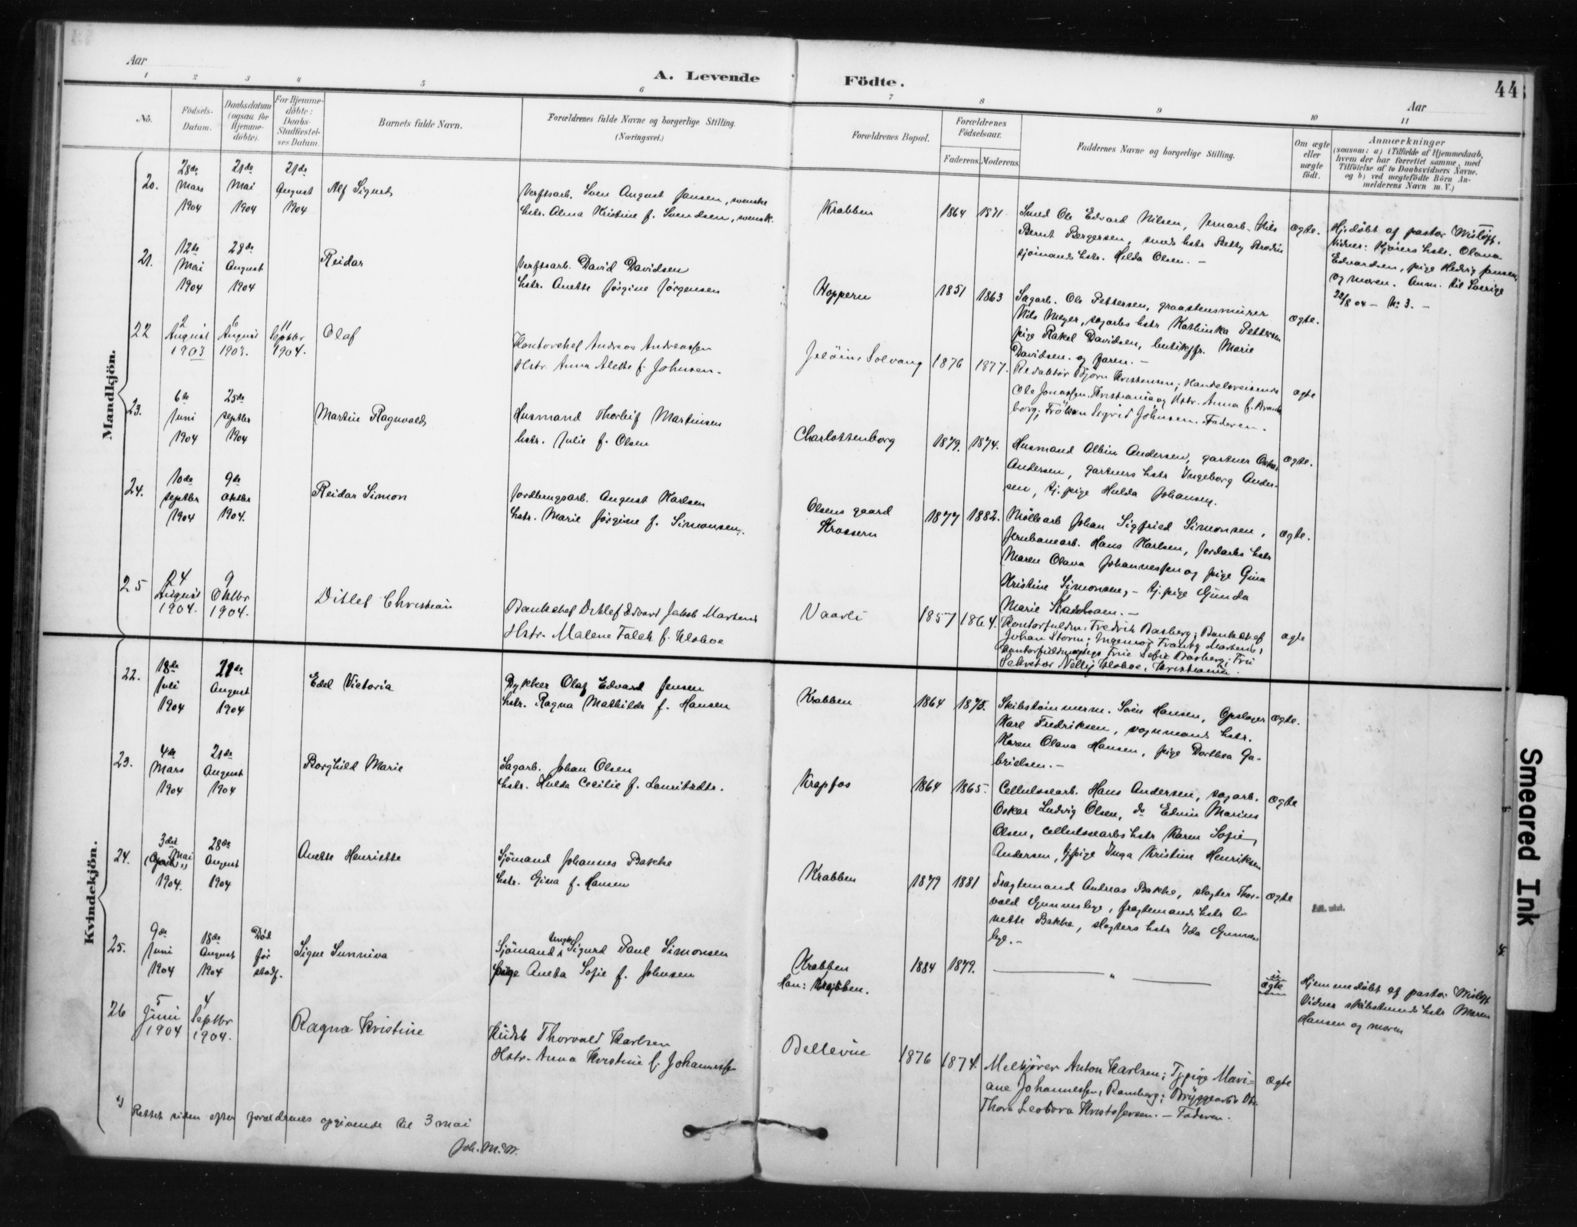 Aar
A. Levende Födte.
44
Aar
1 2 3 4 5 6 7 8 9 10 11
No.
Födsels-
Datum.
Daabsdatum
(ogsaa for
Hjemme-
döbte).
For Hjemme-
döbte:
Daabs-
Stadfæstel-
ses Datum.
Barnets fulde Navn.
Forældrenes fulde Navne og borgerlige Stilling.
(Næringsvei.)
Forældrenes Bopæl.
Forældrenes
Födselsaar.
Faderens. Moderens.
Faddernes Navne og borgerlige Stilling.
Om ægte
eller
uægte
født.
Anmærkninger
(saasom: a) i Tilfælde af Hjemmedaab,
hvem der har forrettet samme, med
Tilföielse af to Daabsvidners Navne.
og b) ved uægtefödte Börn An-
melderens Navn m. V.)
Mandkjön.
20.
28de
Mars
1904
21de
Mai
1904
21de
August
1904
Alf Sigurd
Verftsarb. Sven August Jansen, svenske
hstr. Alma Kristine f. Svendsen, svensk.
Krabben
1864 1871
Smed Ole Edvard Nilsen, Jernarb. Nils
Bernt Børgersen, smeds hstr
sjømands hstr. Hilda Olsen. –
ægte.
Hj.døbt af pastor
Vidner: hstr. Olava
Edvardsen, pige Hedvig Jansen
og moren. Anm. til Sverige
22/8 04 – No 3. –
21.
12te
Mai
1904
28de
August
1904
Reidar
Verftsarb. David Davidsen
hstr. Anette Jørgine Jørgensen
Noppern
1851 1863
Sagarb. Ole Pettersen, graastensmurer
Nils Meyer, sagarbs hstr Kathinka Pettersen
pige Rakel Davidsen, butikjfr. Marie
Davidsen og faren. –
ægte.
22
2
August
1903
6
August
1903.
11
Septbr
1904.
Olaf
Kontorchef Andreas Andreassen
Hstr. Anna Alette f. Johnsen.
Jeløiens Solvang
1876 1877.
Redaktør Bjørn Kristensen; Handelsreisende
Ole Jonassen Kristiania og Hstr. Anna f.
borg, Frøken Sigrid Johnsen. Faderen.
ægte
23.
6te
Juni
1904
25de
Septbr
1904
Martin Ragnvald
Husmand Thorleif Martinsen
hstr. Julie f. Olsen
Charlottenborg
1879. 1874.
Husmand Albin Andersen, gartner Oskar
Andersen, gartners hstr Ingeborg Ander-
sen, tj. pige Hulda Johansen.
ægte.
24.
10de
Septbr
1904
9de
Oktbr
1904.
Reidar Simon
Jordbrugsarb. August Karlsen
hstr. Marie Jørgine f. Simonsen.
Olsens gaard
Krossern
1877 1882.
Møllearb Johan Sigfried Simonsen,
Jernbanearb. Hans Karlsen, Jordarbs hstr
Maren Olava Johannessen og pige Gina
Kristine Simonsen, – tj. pige Gunda
Marie
ægte.
25
24
August
1904.
9
Oktbr
1904.
Ditlef Christian
Bankchef Ditlef Edvard Jakob Martens
Hstr. Malene Falck f. Kloboe
Vaarli
1857 1864.
Kontorfuldm. Fredrik Basberg; Bankchef
Johan Storm; Ingeniør Martens;
Sekretær Nelly Kloboe, Kristiania.
ægte
Kvindekjön.
22.
18de
Juli
1904
21de
August
1904
Edel Victoria
Dykker Olaf Edvard Jensen
hstr. Ragna Mathilde f. Hansen
Krabben
1864 1875.
Skibstømmerm. Søren Hansen, Opslager
Karl Fredriksen, vognmands hstr.
Karen Olava Hansen, pige Dorthea Ga-
brielsen. –
ægte.
23.
4de
Mars
1904
21de
August
1904
Borghild Marie
Sagarb. Johan Olsen
hstr. Hulda Cecilie f. Lauritzdtr.
Krapfos
1864 1865.
Cellulosearb. Hans Andersen, sagarb.
Oskar Ludvig Olsen, do Edvin Marius
Olsen, cellulosearbs hstr Karen Sofie
Andersen, tj. pige Inga Kristine Henriksen
ægte
24.
3die
(April) Mai
1904.
28de
August
1904
Anette Henriette
Sjömand Johannes Bakke
hstr. Gina f. Hansen
Krabben
1879 1881
Fragtemand Andreas Bakke, slagter Thor-
vald Gunneslye, fragtemands hstr A-
nette Bakke, slagters hstr Ida Gunnes-
lye. –
ægte
25.
9de
Juni
1904
18de
August
1904
Død
før
stadf.
Signe Sunniva
Sjömand Sigurd Paul Simonsen
pige Anetta Sofie f. Johnsen
Krabben
Han: Krabben.
1884 1879.
— „ —
u
ægte
Hjemmedøbt af pastor
Vidner skibstømmerms hstr Maren
Hansen og moren
26
5
Juni
1904
4
Septbr
1904.
Ragna Kristine
Kudsk Thorvald Karlsen
Hstr. Anna Kristine f. Johannessen
Bellevue
1876 1874.
Melkjører Anton Karlsen; Tj.pige Mari-
ane Johannessen, Ramberg; Bryggearb.
Thora Leobora Kristofersen. – Faderen.
ægte
*) Rettet siden efter forældrenes opgivende til 3 mai
Joh. M. N.
Smeared Ink